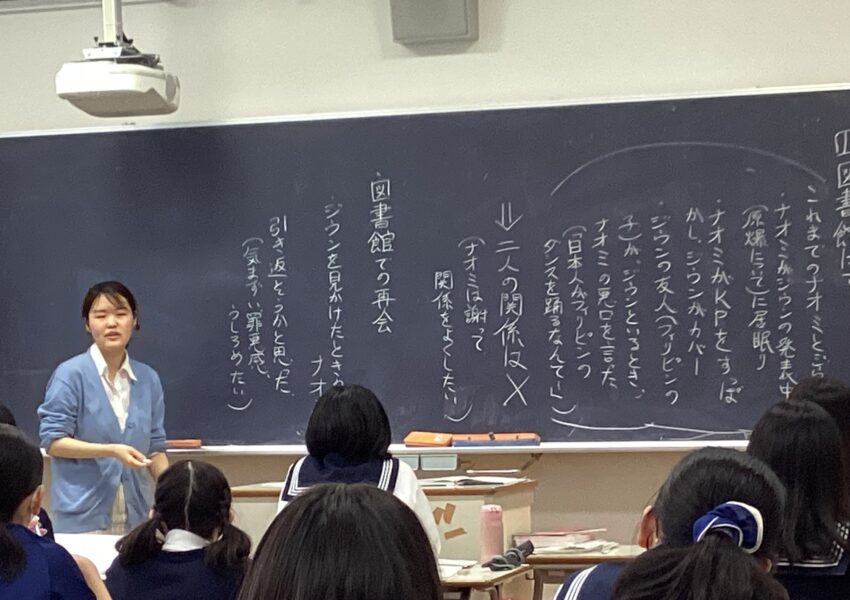 Ⅱ図書館にて
これまでのナオミとジウ
・ナオミがジウンの発表中
(原爆について)に居眠り
・ナオミがKPをすっぽ
かし、ジウンがカバー
・ジウンの友人(フィリピンの
子)がジウンといるとき、
ナオミの悪口を言った
(「日本人がフィリピンの
ダンスを踊るなんて〜」)
⇓二人の関係は×
(ナオミは謝って
関係をよくしたい)
図書館での再会
・ジウンを見かけたときの ナオ
引き返そうかと思った
(気まずい、罪悪感、
うしろめたい)